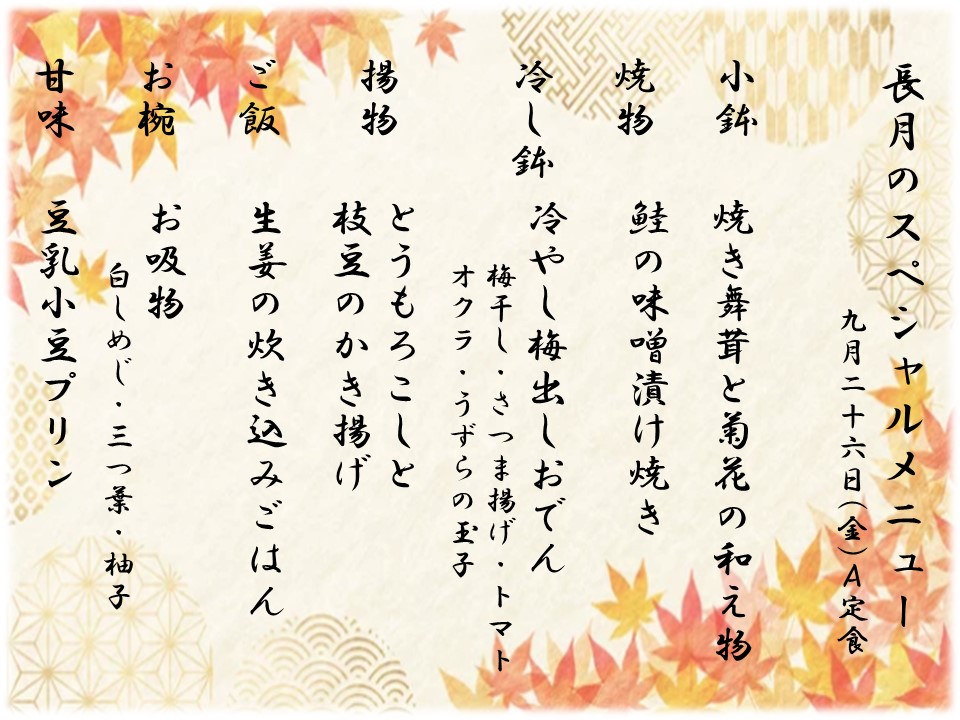 長月のスペシャルメニュー
九月二十六日(金)A定食
小鉢　焼き舞茸と菊花の和え物
焼物　鮭の味噌漬け焼き
冷し鉢　冷やし梅出しおでん
梅干し・さつま揚げ・トマト
オクラ・うずらの玉子
揚物　とうもろこしと
枝豆のかき揚げ
ご飯　生姜の炊き込みごはん
お椀　お吸物
白しめじ・三つ葉・柚子
甘味　豆乳小豆プリン